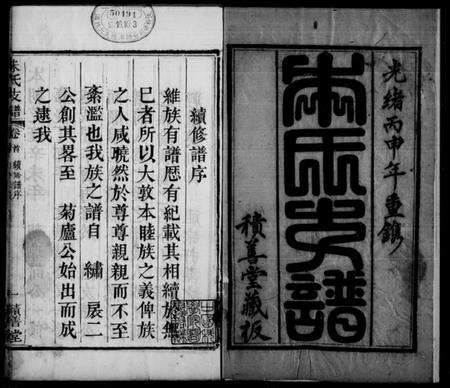 光緒丙申年重鐫
朱氏支譜
積善堂藏板
續修譜序
維族有譜歷有紀載其相續於無
已者所以大敦本睦族之義俾族
之人咸曉然於尊尊親親而不至
紊濫也我族之譜自 繡 扆二
公創其畧至 菊廬公始出而成
之逮我
朱氏支譜 卷首 續修譜序 一 積善堂
50494